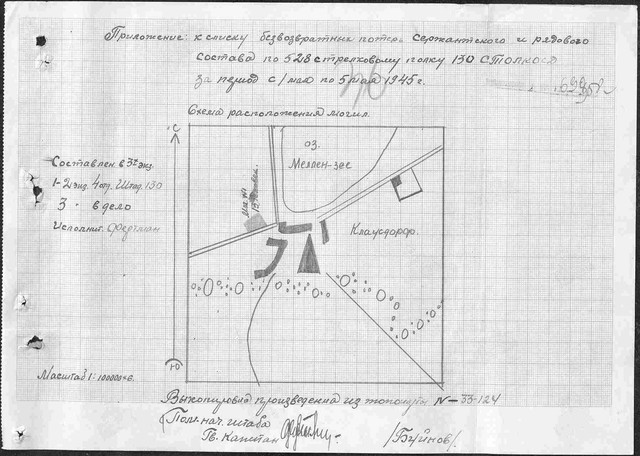 Приложение: к списку безвозвратных потерь сержантского и рядового
состава по 528 стрелковому полку 130
за период с 1 мая по 5 мая 1945 г.
Схема расположения могил.
С
оз.
Меллен-зее
Составлен в 3х экз.
1-2 экз. 4 отд. Шт. 130
3 - в дело
Исполнит. Фертман
Клаусдорф.
Ю
Масштаб 1:100000
Выкопировка произведена из топокарты N-33-124
Пом. нач. штаба
Гв. Капитан
/Буйнов/.